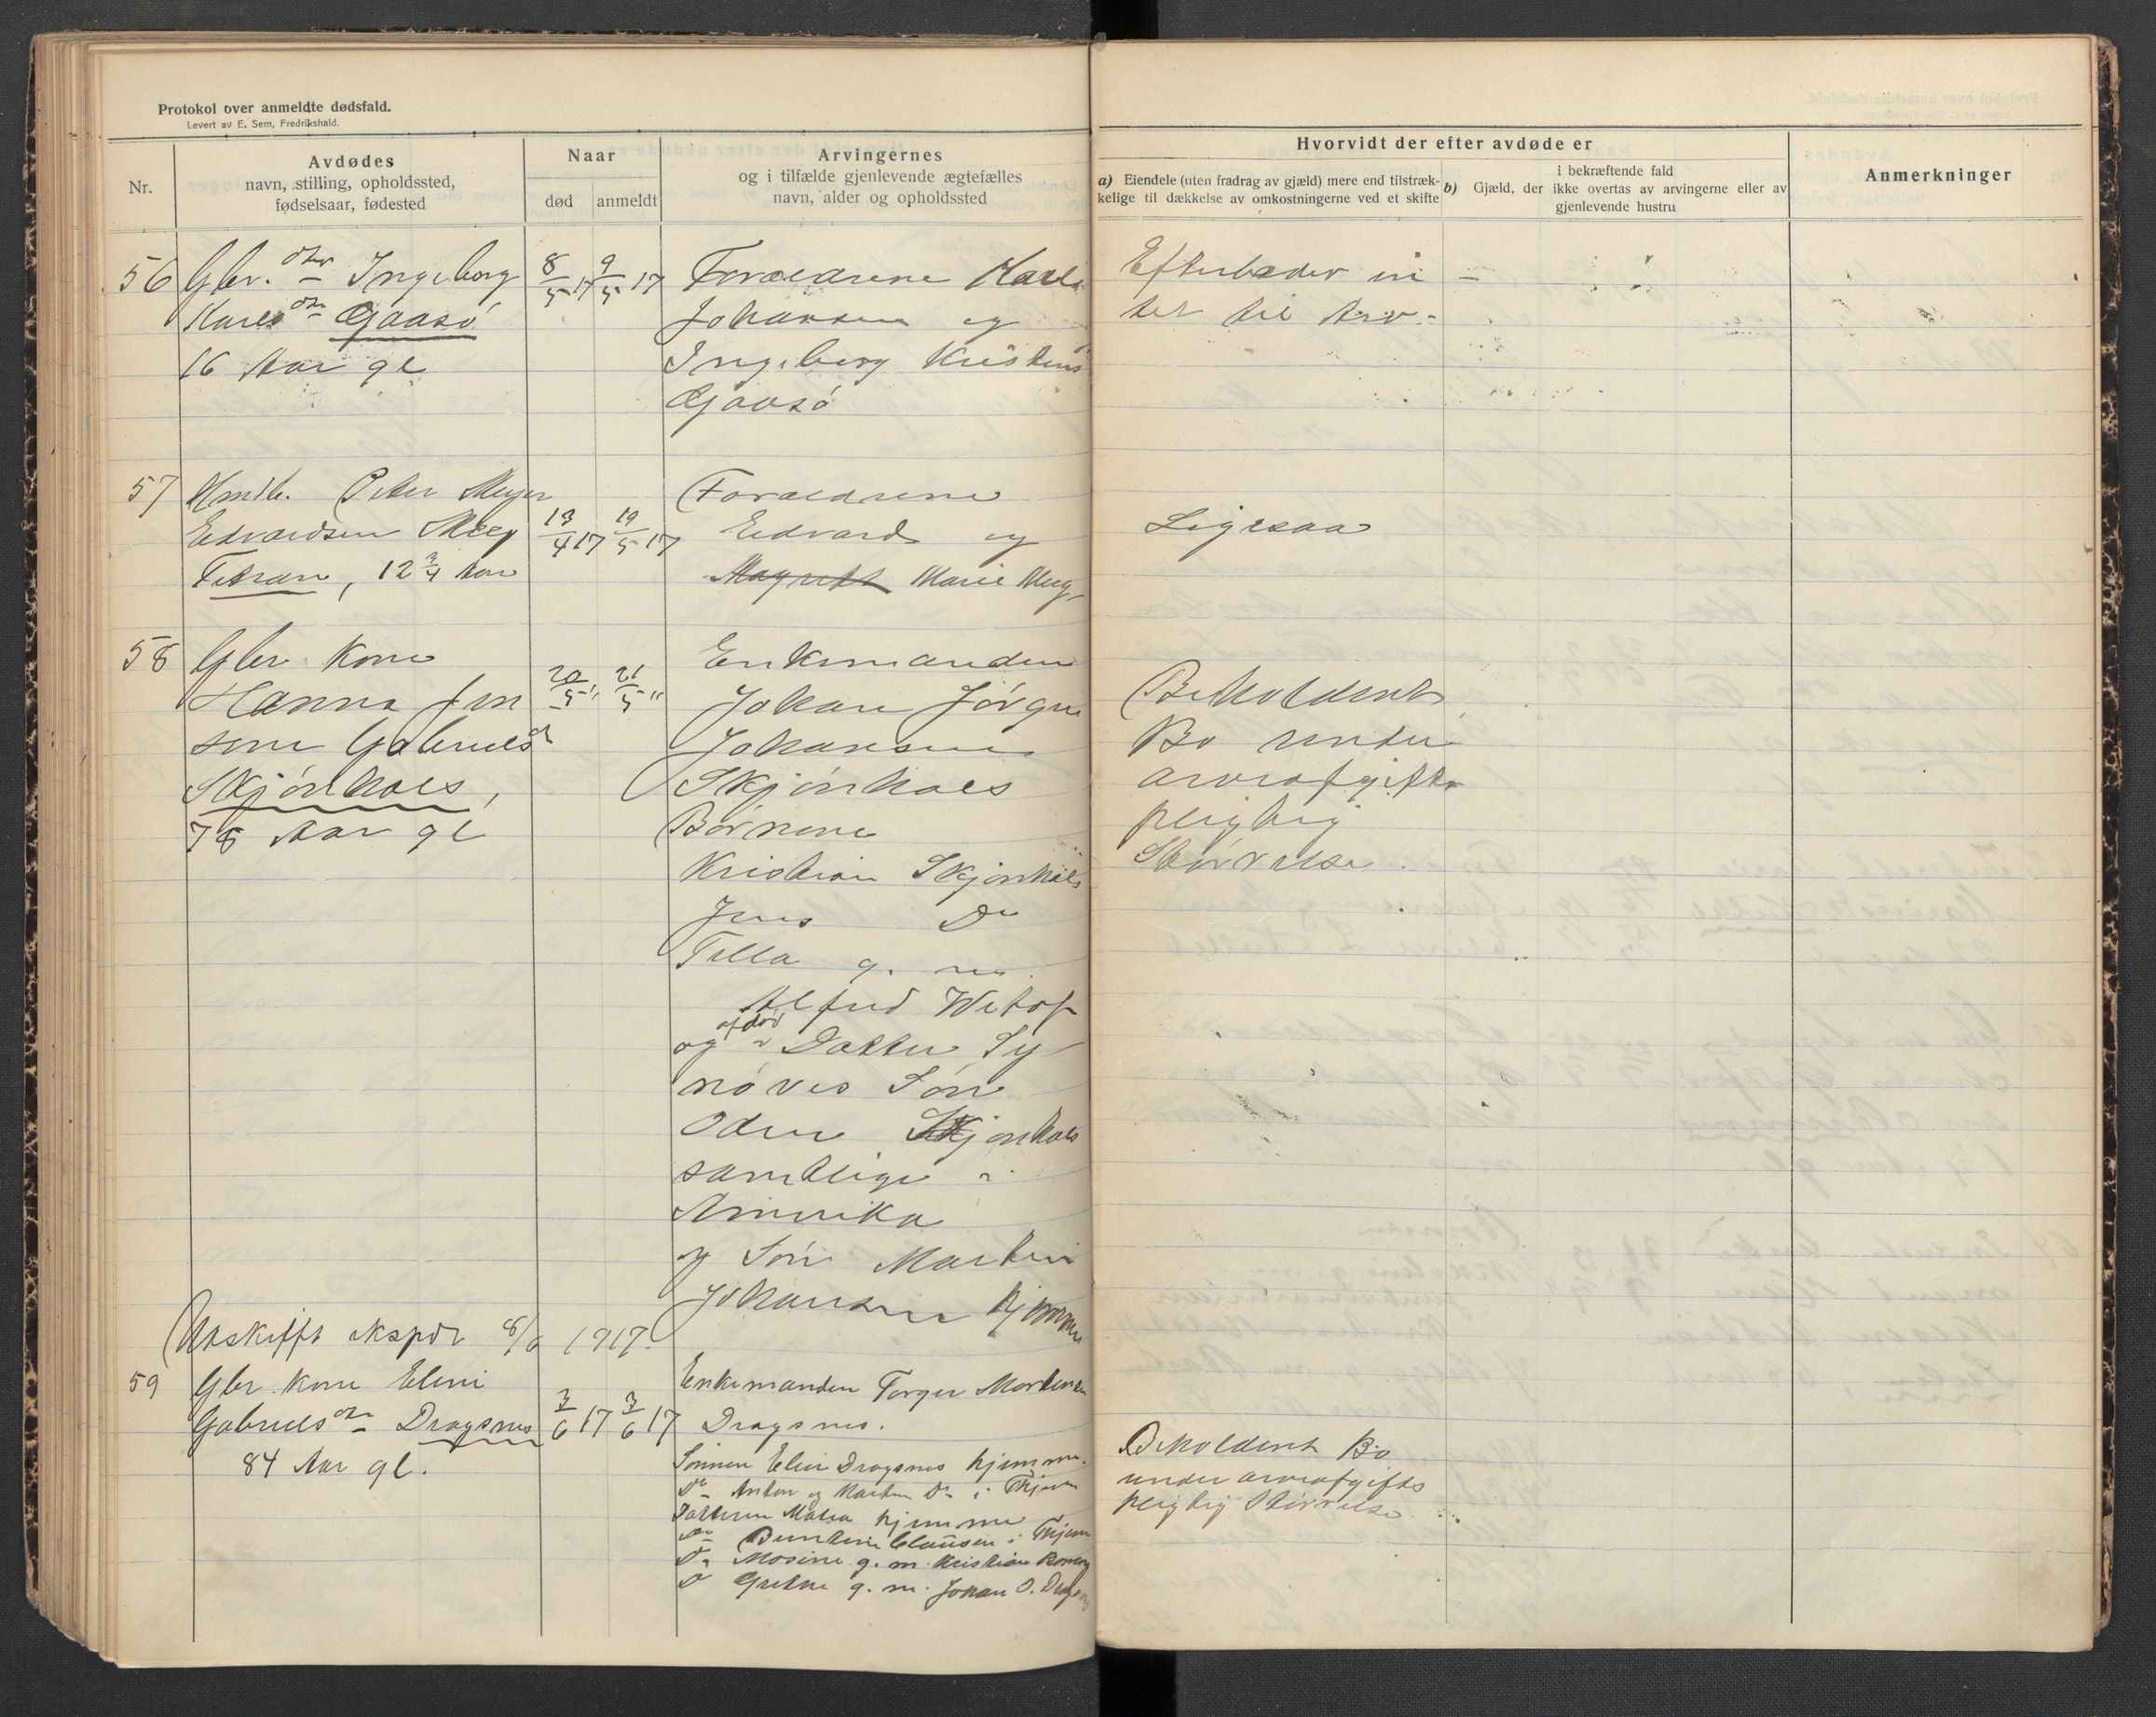 Protokol over anmeldte dødsfald.
Levert av E. Sem, Fredrikshald.
Nr.
Avdødes
navn, stilling, opholdssted,
fødselsaar, fødested
Naar
død
anmeldt
Arvingernes
og i tilfælde gjenlevende ægtefælles
navn, alder og opholdssted
Hvorvidt der efter avdøde er
a) Eiendele (uten fradrag av gjæld) mere end tilstræk-
kelige til dækkelse av omkostningerne ved et skifte
b) Gjæld, der
i bekræftende fald
ikke overtas av arvingerne eller av
gjenlevende hustru
Anmerkninger
56 Gbr. dtr Ingeborg
Karlsdtr Gaasø
16 Aar gl
8/5 17 9/5 17
Forældrene Karl
Johansen og
Ingeborg Kristens
Gaasø
Efterlader in
tet til Arv. -
57 Peter Meyer
Edvardsen Meg
Titran, 12 3/4 Aar
13/4 17 19/5 17
Forældrene
Edvard og
Magrethe Marie Meg
Ligesaa
58 Gbr Kone
Hanna Jen
sine Gabrielsd
Skjønhals,
78 Aar gl
20/5 " 21/5 "
Enkemanden
Johan Jørgen
Johansen
Skjønhals
Børnene
Kristian Skjønhals
Jens Do
Tilla g. m.
Alfred
og afdød Datter Sy
nøves Søn
Odin Skjønhals
samtlige i
Amerika
og Søn Martin
Johansen hjemme
Beholdent
Bo under
arveafgifts
pligtig
Størrelse.
Utskift. ekspdr 8/6 1917.
59 Gbr. Kone Elene
Gabrielsdtr Dragsnes
84 Aar gl.
3/6 17 3/6 17
Enkemanden Torger Mortensen
Dragsnes.
Sønnen Elier Dragsnes hjemme.
Do Anton og Martin Do i Thjem
Datteren Matea hjemme
Do Berntine Clausen i Thjem
Do Mosine g. m. Kristian
Do Grethe g. m. Johan O. Dragsnes
Beholdent Bo
under arveafgifts
pligtig Størrelse